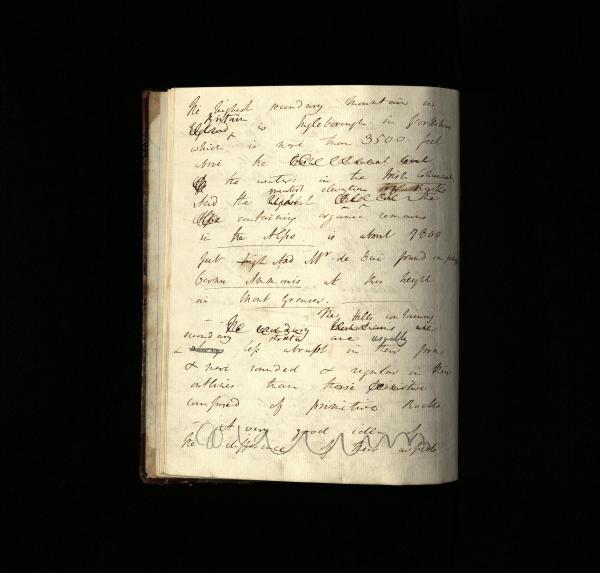 The highest secondary mountain in
Britain
England is Ingleborough in Yorkshire
which is more than 3500 feet
above the level
of the waters in the Irish channel
And the greatest elevation
highest of the
Alps containing organic remains
in the Alps is about 7800
feet high And Mr de Luc found
cornu Ammonis at this height
in Mont Grenier.
The Hills containing
The secondary mountains are
secondary strata are usually
less abrupt in their forms
& more rounded & regular in their
outlines than those
composed of primitive Rocks
- A very good idea of
the difference of their aspects